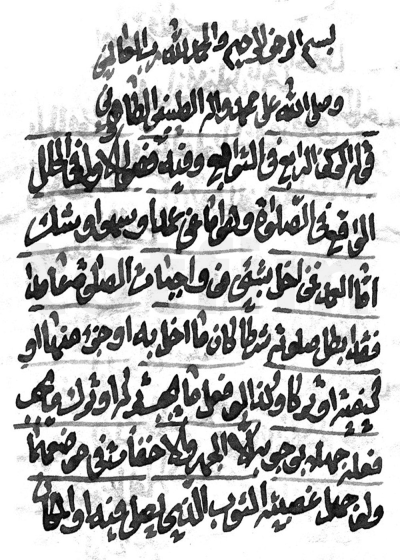 بسم الله الرحمن الرحيم والحمد لله رب العالمين
وصلى الله على محمد وآله الطيبين الطاهرين
قوله الركن الرابع في التوابع وفيه فصول الأول في الخلل
الواقع في الصلوة وهو اما عن عمد او سهو او شك
اما العمد فمن اخل بشئ من واجبات الصلوة متعامدا
فقد ابطل صلوته شرطا كان ما اخل به او جزء منها او
كيفية او تركا وكذا لو فعل ما يجب تركه او ترك ما يجب
فعله جهلا بوجوبه الا الجهر والاخفات في موضعهما
ولو جهل غصبية الثوب الذي يصلى فيه او المكان